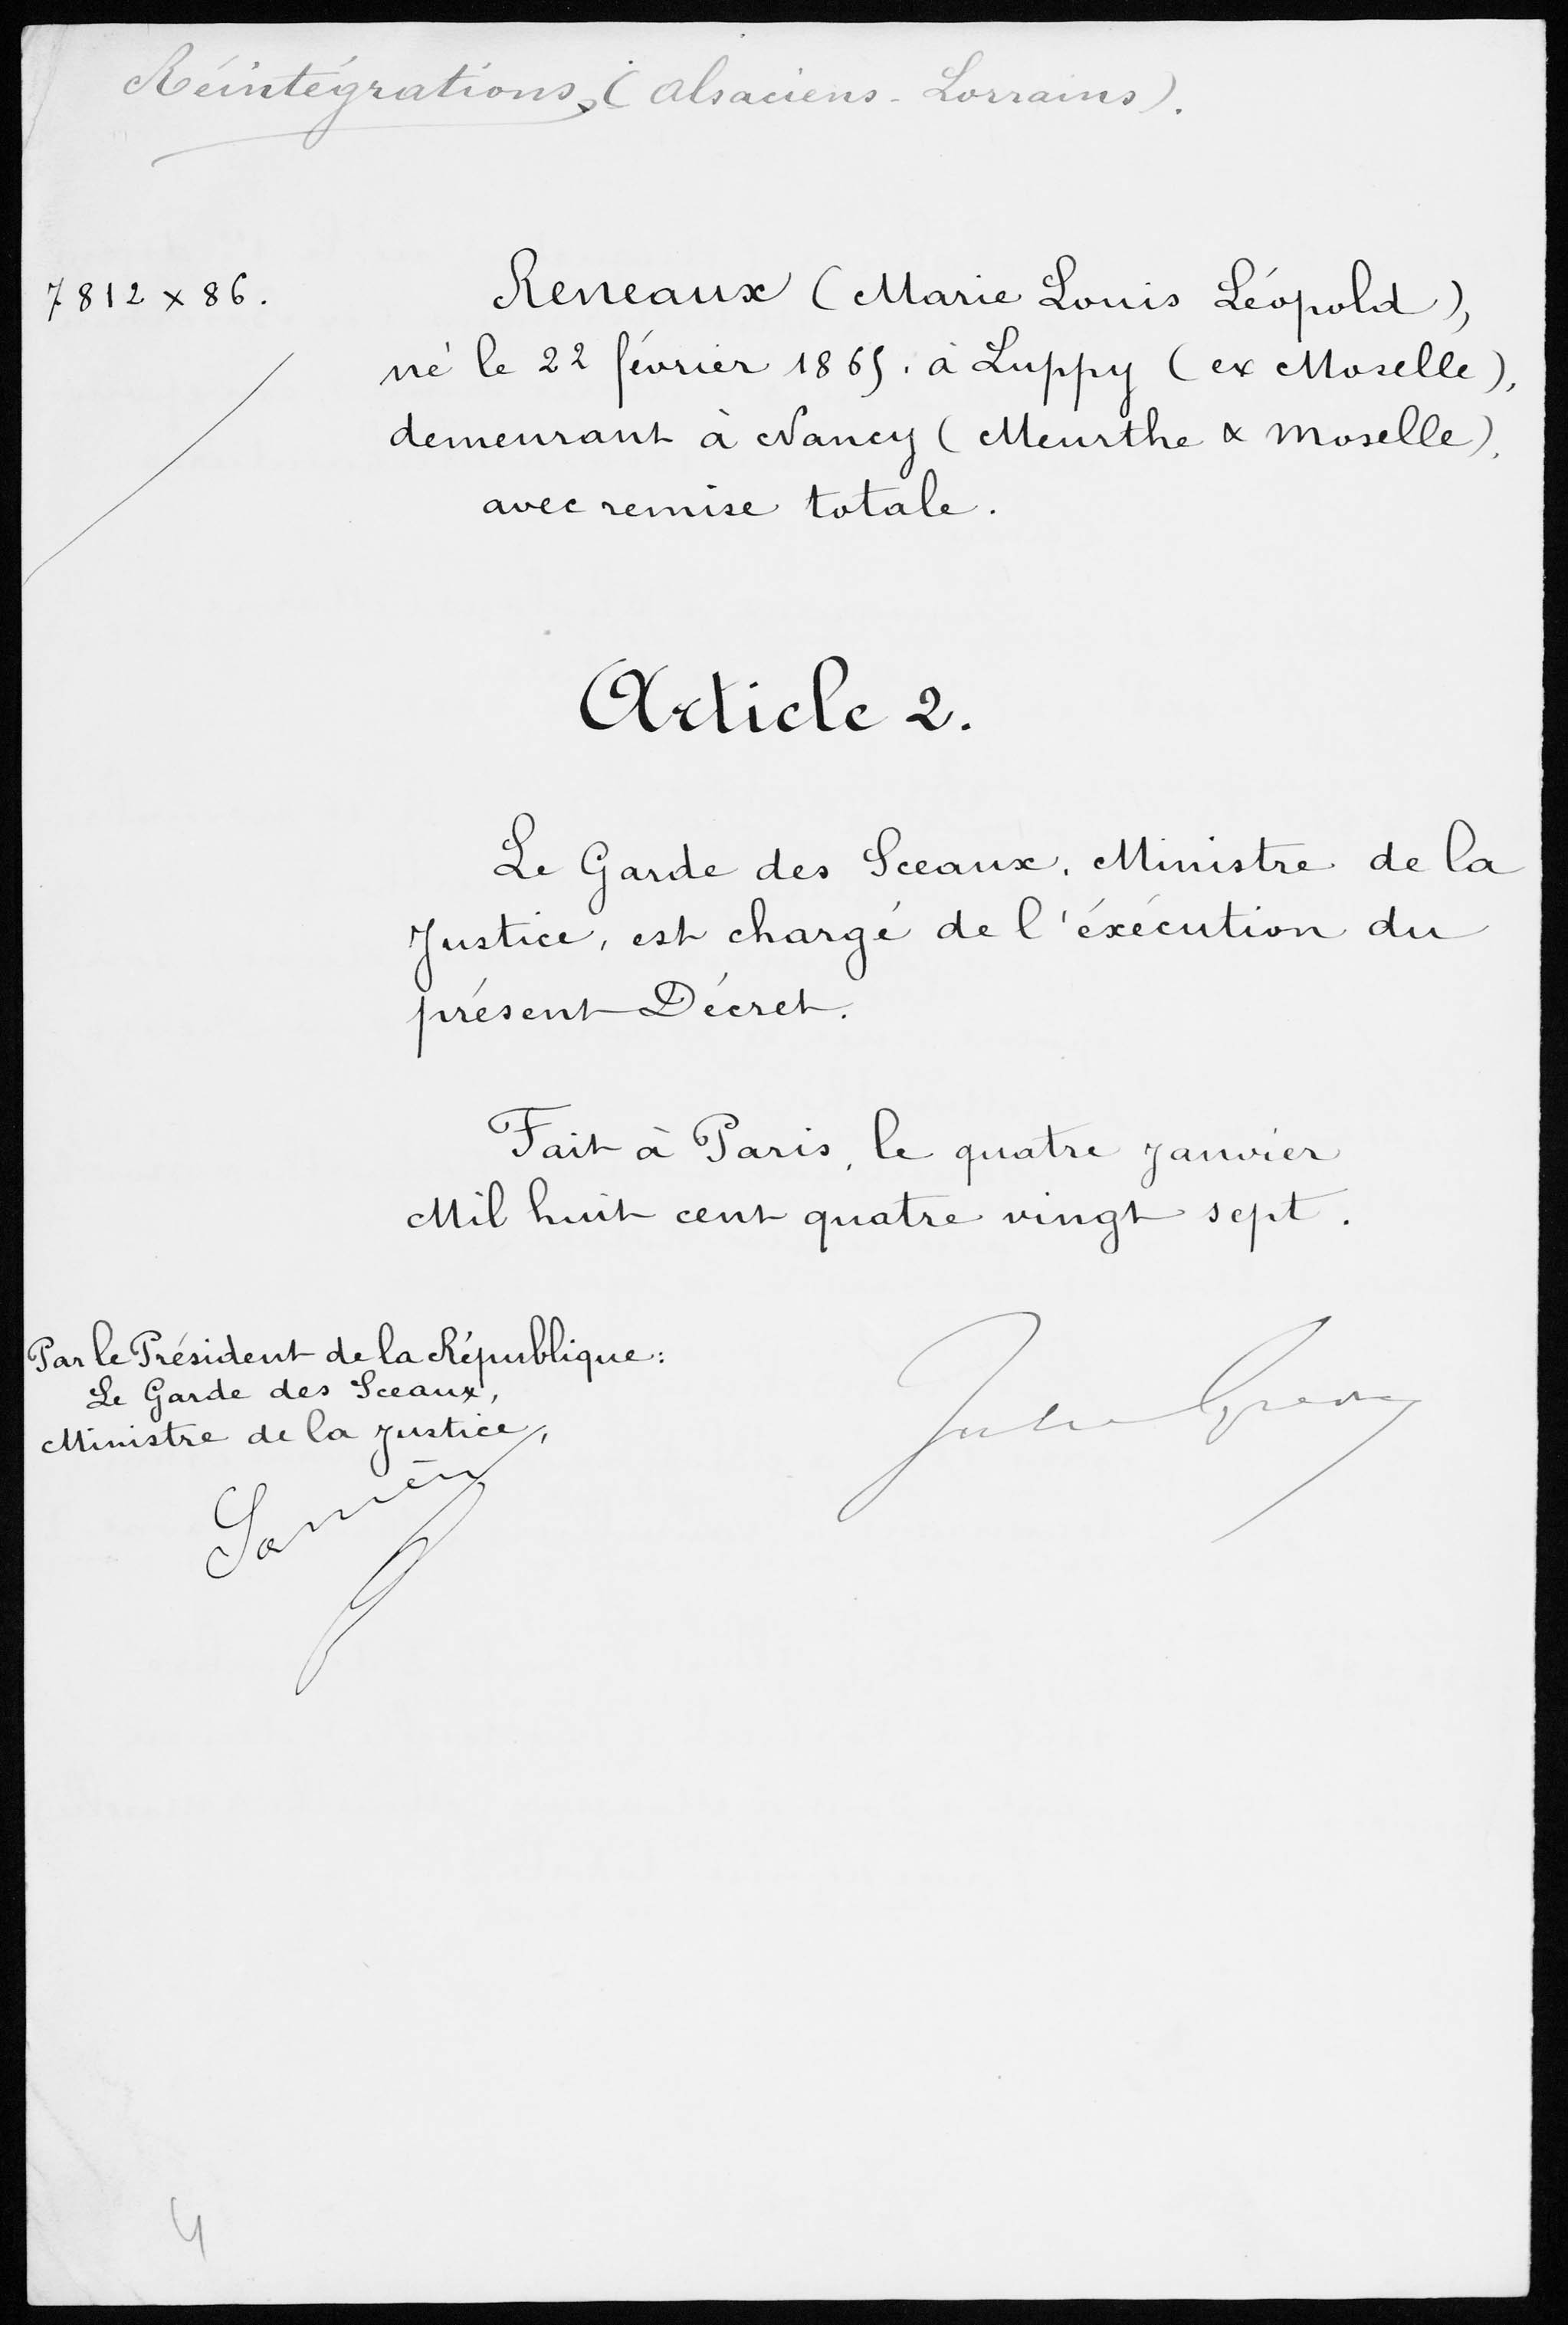 Réintégrations, (Alsaciens-Lorrains).
7812 x 86.
Reneaux (Marie Louis Léopold),
né le 22 février 1865. à Luppy (ex Moselle),
demeurant à Nancy (Meurthe & Moselle),
avec remise totale.
Article 2.
Le Garde des Sceaux, Ministre de la
Justice, est chargé de l'éxécution du
présent Décret.
Fait à Paris, le quatre janvier
Mil huit cent quatre vingt sept.
Par le Président de la République:
Le Garde des Sceaux,
Ministre de la justice,
Sarrien
Jules Grévy
4